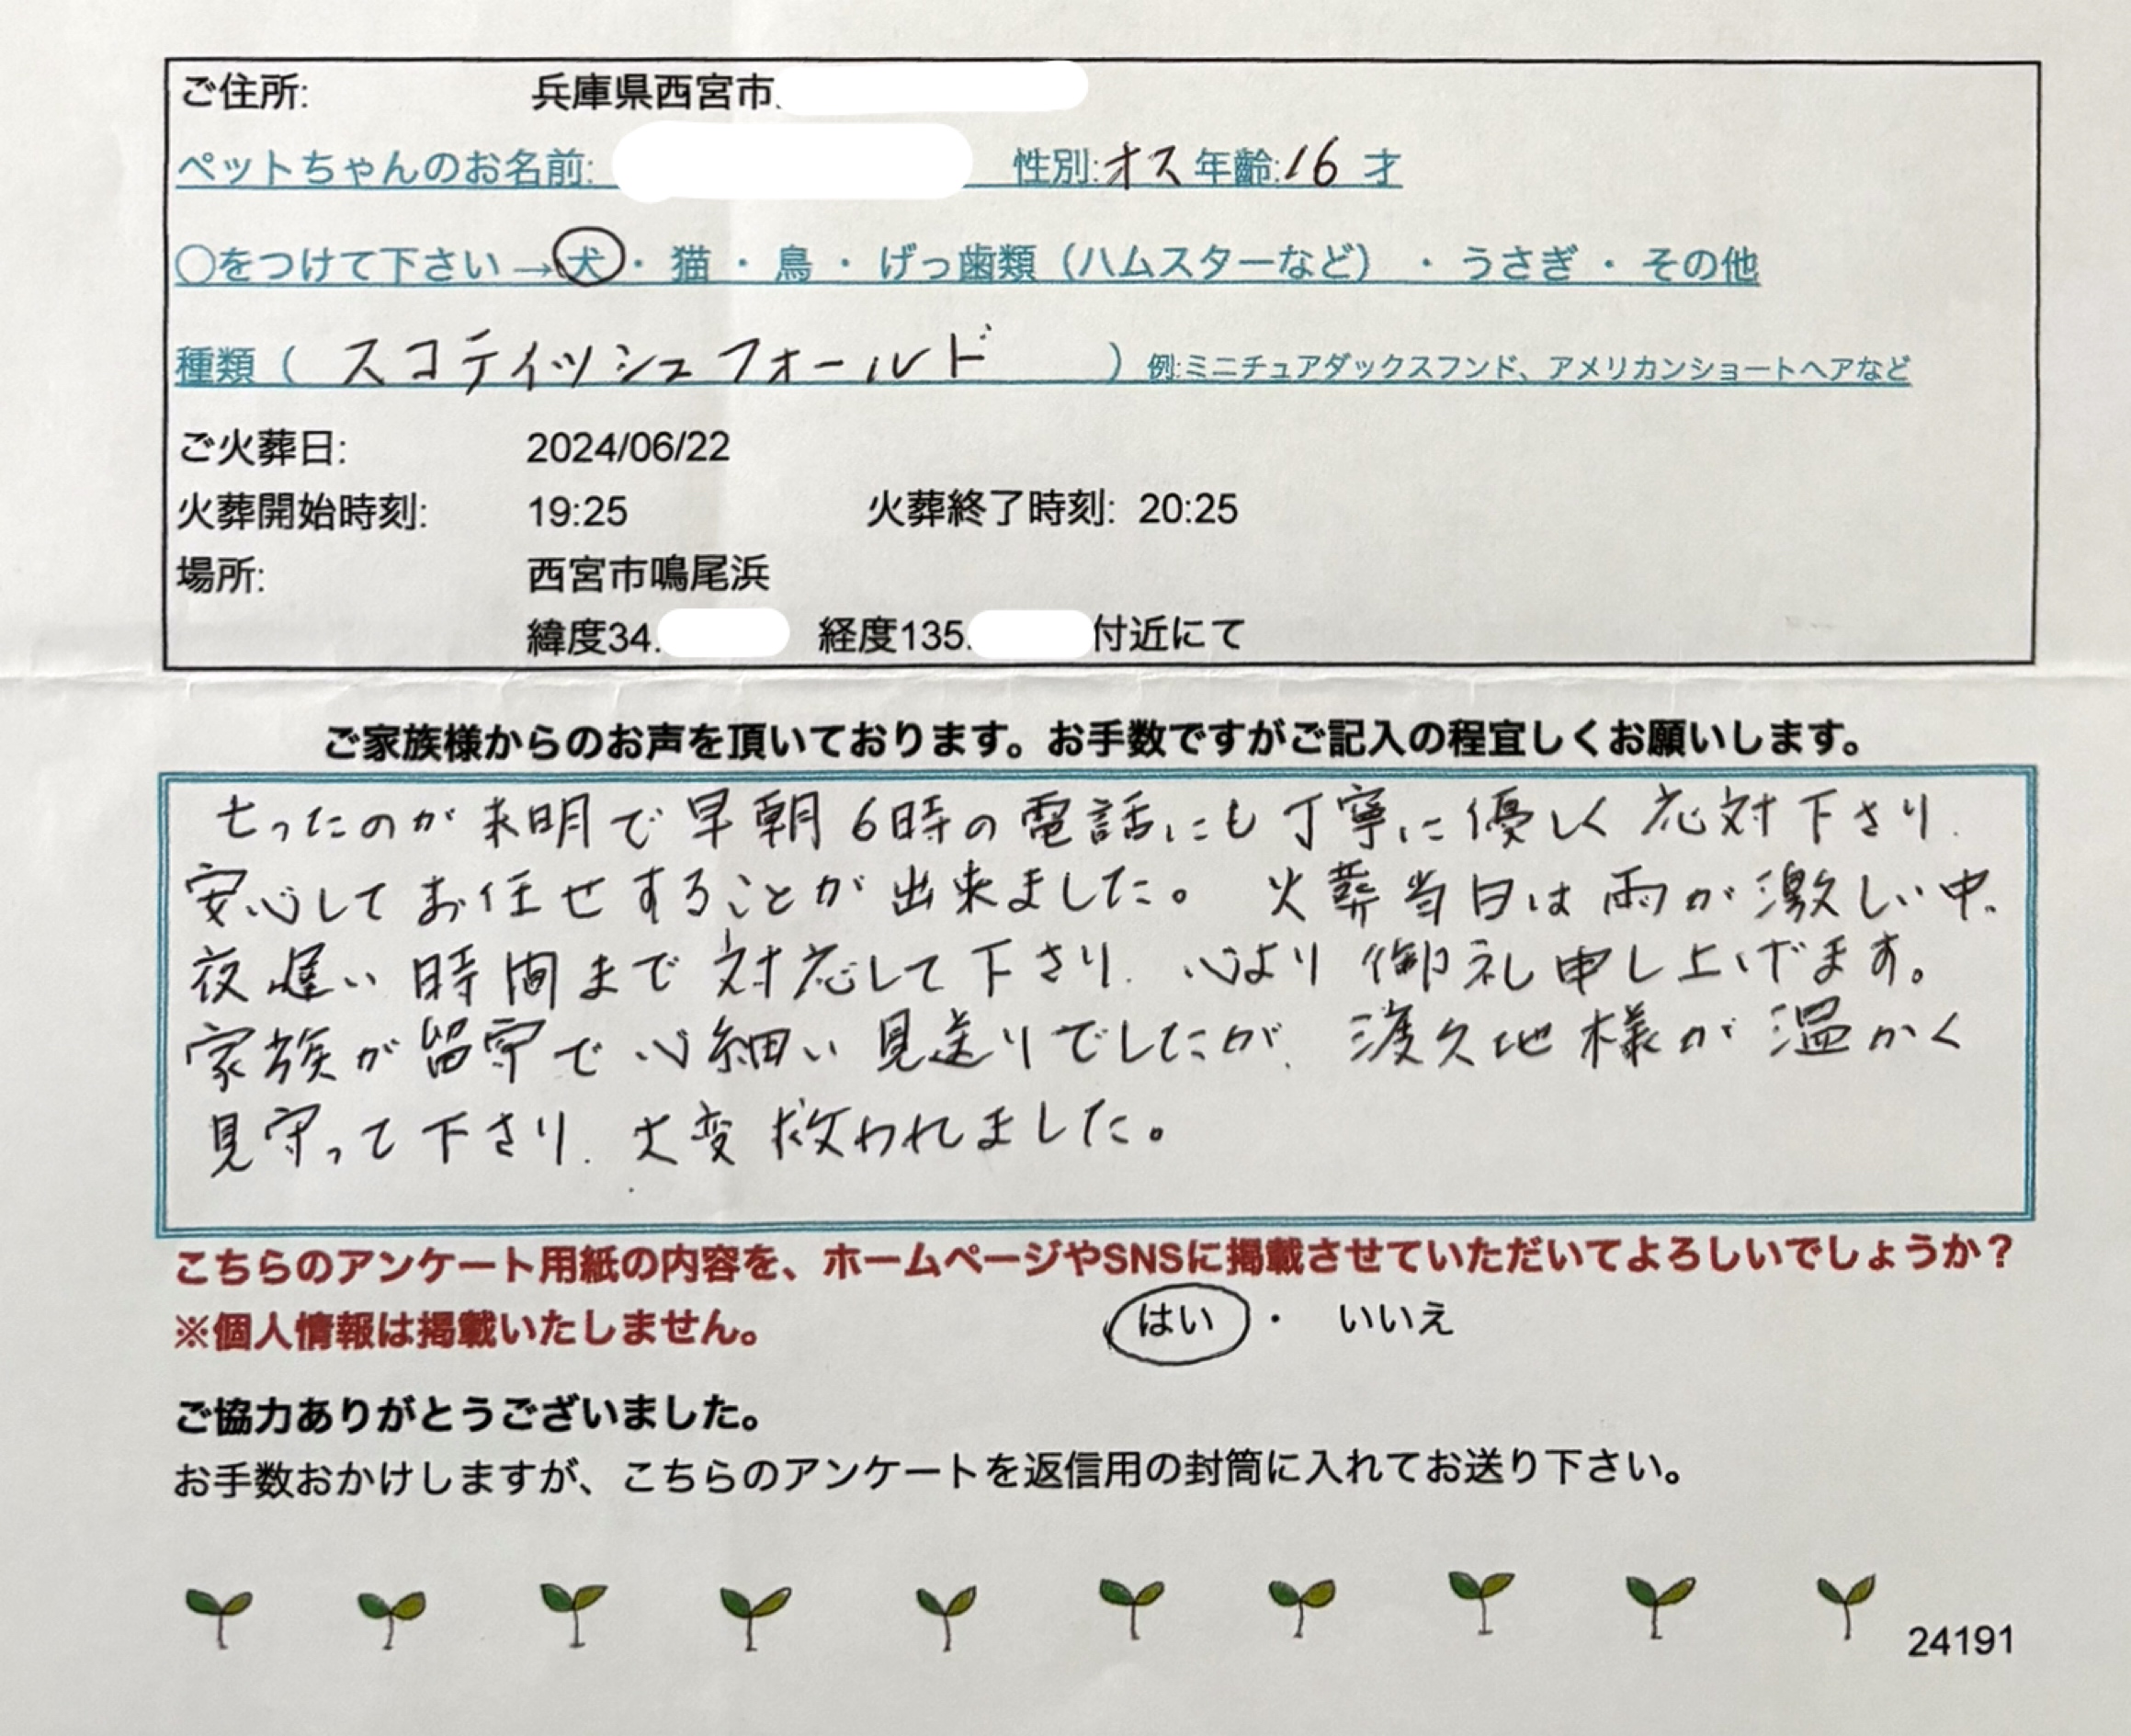 ご住所: 兵庫県西宮市
ペットちゃんのお名前: 性別:オス 年齢:16 才
○をつけて下さい→犬・猫・鳥・げっ歯類（ハムスターなど）・うさぎ・その他
種類（スコティッシュフォールド）例:ミニチュアダックスフンド、アメリカンショートヘアなど
ご火葬日: 2024/06/22
火葬開始時刻: 19:25 火葬終了時刻: 20:25
場所: 西宮市鳴尾浜
緯度34. 経度135. 付近にて
ご家族様からのお声を頂いております。お手数ですがご記入の程宜しくお願いします。
亡ったのが未明で早朝6時の電話にも丁寧に優しく応対下さり、
安心してお任せすることが出来ました。火葬当日は雨が激しい中、
夜遅い時間まで対応して下さり、心より御礼申し上げます。
家族が留守で心細い見送りでしたが、渡久地様が温かく
見守って下さり、大変救われました。
こちらのアンケート用紙の内容を、ホームページやSNSに掲載させていただいてよろしいでしょうか？
※個人情報は掲載いたしません。 はい・いいえ
ご協力ありがとうございました。
お手数おかけしますが、こちらのアンケートを返信用の封筒に入れてお送り下さい。
24191